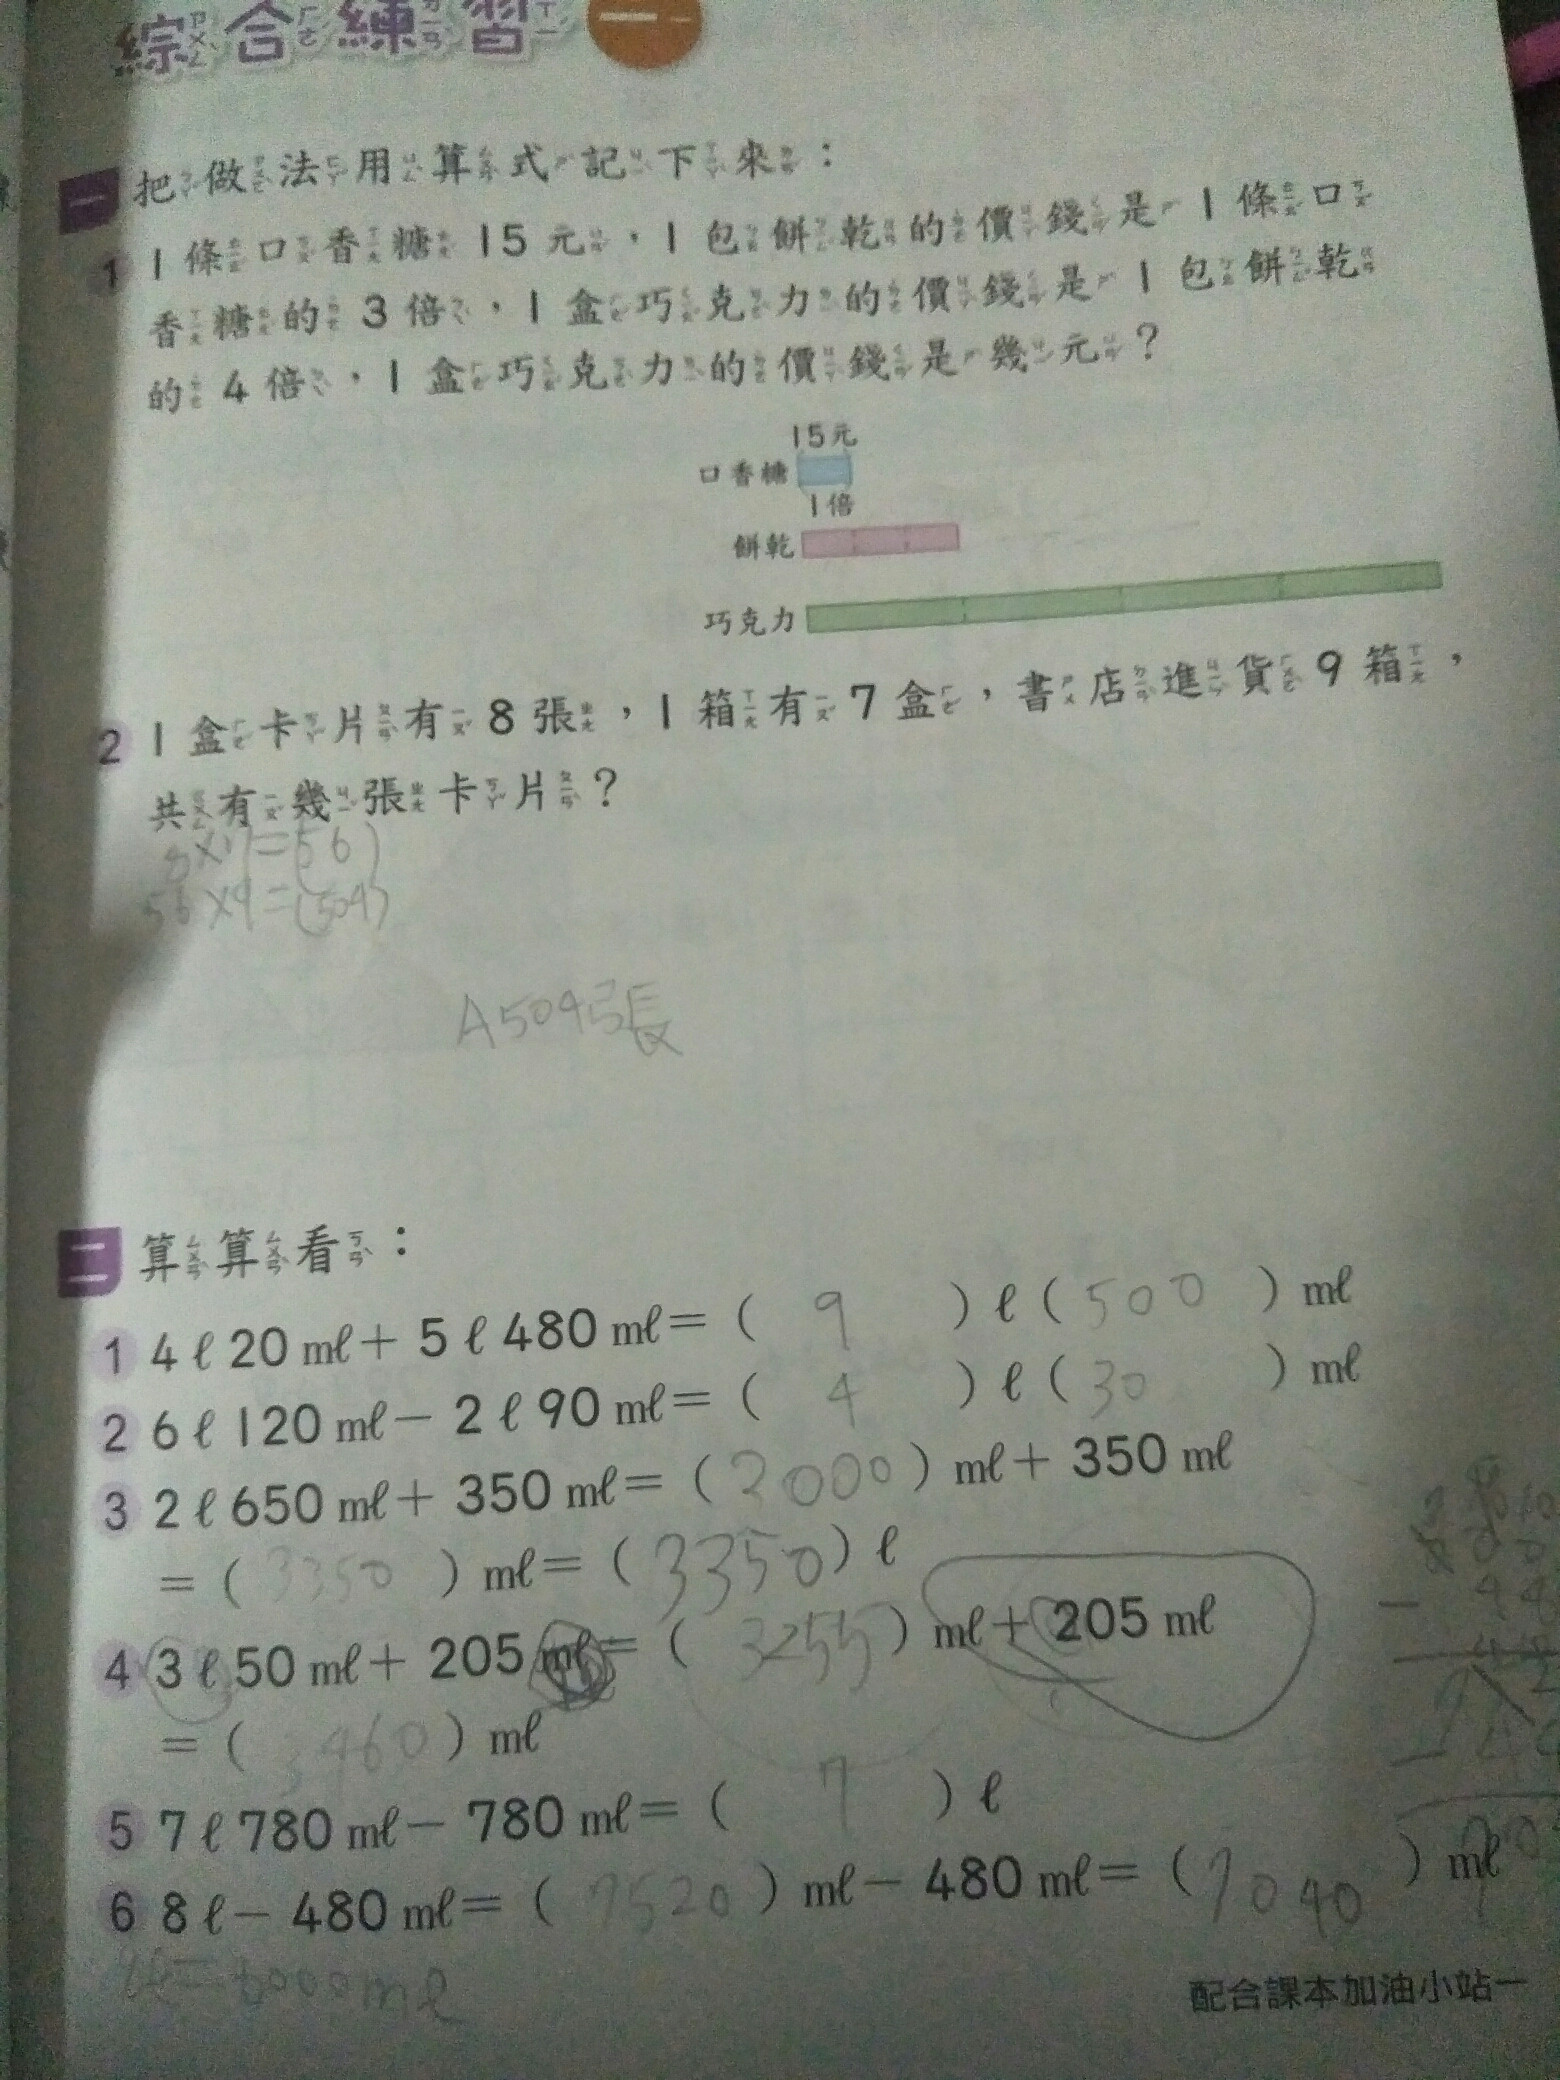 綜合練習 一
一 把做法用算式記下來：
1 1條口香糖15元，1包餅乾的價錢是1條口
香糖的3倍，1盒巧克力的價錢是1包餅乾
的4倍，1盒巧克力的價錢是幾元？
15元
口香糖
1倍
餅乾
巧克力
2 1盒卡片有8張，1箱有7盒，書店進貨9箱，
共有幾張卡片？
8×7=(56)
56×9=(504)
A504張
二 算算看：
1 4ℓ20mℓ＋5ℓ480mℓ＝（9）ℓ（500）mℓ
2 6ℓ120mℓ－2ℓ90mℓ＝（4）ℓ（30）mℓ
3 2ℓ650mℓ＋350mℓ＝（3000）mℓ＋350mℓ
＝（3350）mℓ＝（3350）ℓ
4 3ℓ50mℓ＋205mℓ＝（3255）mℓ＋205mℓ
＝（3460）mℓ
5 7ℓ780mℓ－780mℓ＝（7）ℓ
6 8ℓ－480mℓ＝（7520）mℓ－480mℓ＝（7040）mℓ
配合課本加油小站一